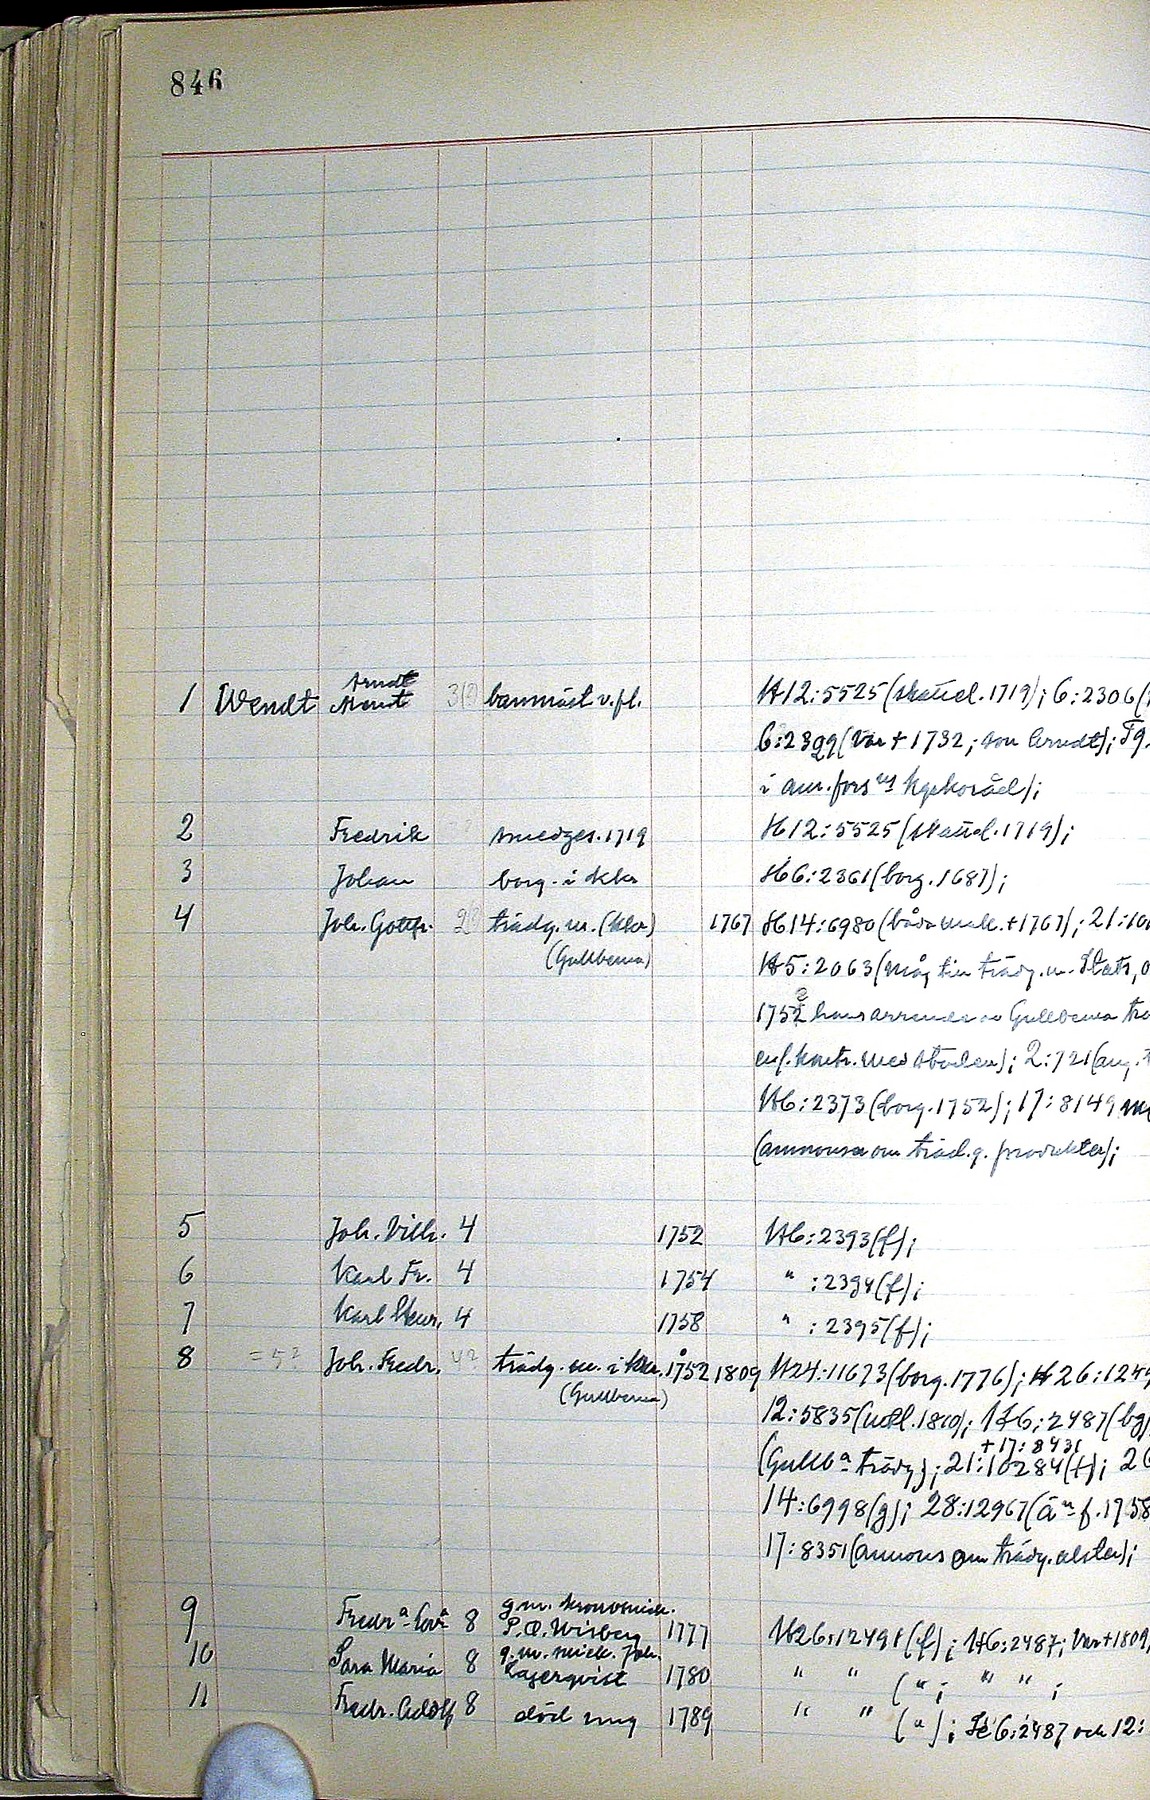 846
Arndt
1 Wendt Arendt 3(?) banmäst v.fl. H12:5525 (skattel. 1719); 6:2306
6:2399 (var + 1732, son Arndt);
i anr. fors
2 Fredrik smedges. 1719 H12:5525 (skattel. 1719);
3 Johan borg. i Kkr H6:2361 (borg. 1687);
4 Joh. Gottfr. 2? trädg. m. (Kkr) 1767 H14:6980 (båda makk. + 1767); 21:10
(Gullberna) H5:2063 (måg till trädg. m. Stats,
1752 hans arrende av Gullberna
enl. kontr. med staden); 2:721 (ang.
H6:2373 (borg. 1752); 17:8149
(annonser om träd.g. produkter);
5 Joh. Vilh. 4 1752 H6:2393 (f);
6 Karl Fr. 4 1754 " :2394 (f);
7 Karl Henr. 4 1758 " :2395 (f);
8 = 5? Joh. Fredr. 4? trädg. m. i Kkr. 1752 1809 H24:11673 (borg. 1776); H26:1249
(Gullberna) 12:5835 (1810); H6:2487 (bg)
+17:8431
(Gullbᵃ trädg); 21:10284 (f); 26
14:6998 (g); 28:12967 (f. 1758
17:8351 (annons om trädg. alster);
g.m. kronosmick.
9 Fredrᵃ Lovᵃ 8 P.O. Wisberg 1777 H26:12491 (f); H6:2487; var + 1809
g.m. mick. Joh.
10 Sara Maria 8 Lagerqvist 1780 " " ( " ; " " ;
11 Fredr. Adolf 8 död ung 1789 " " ( " ); Se 6:2487 och 12: